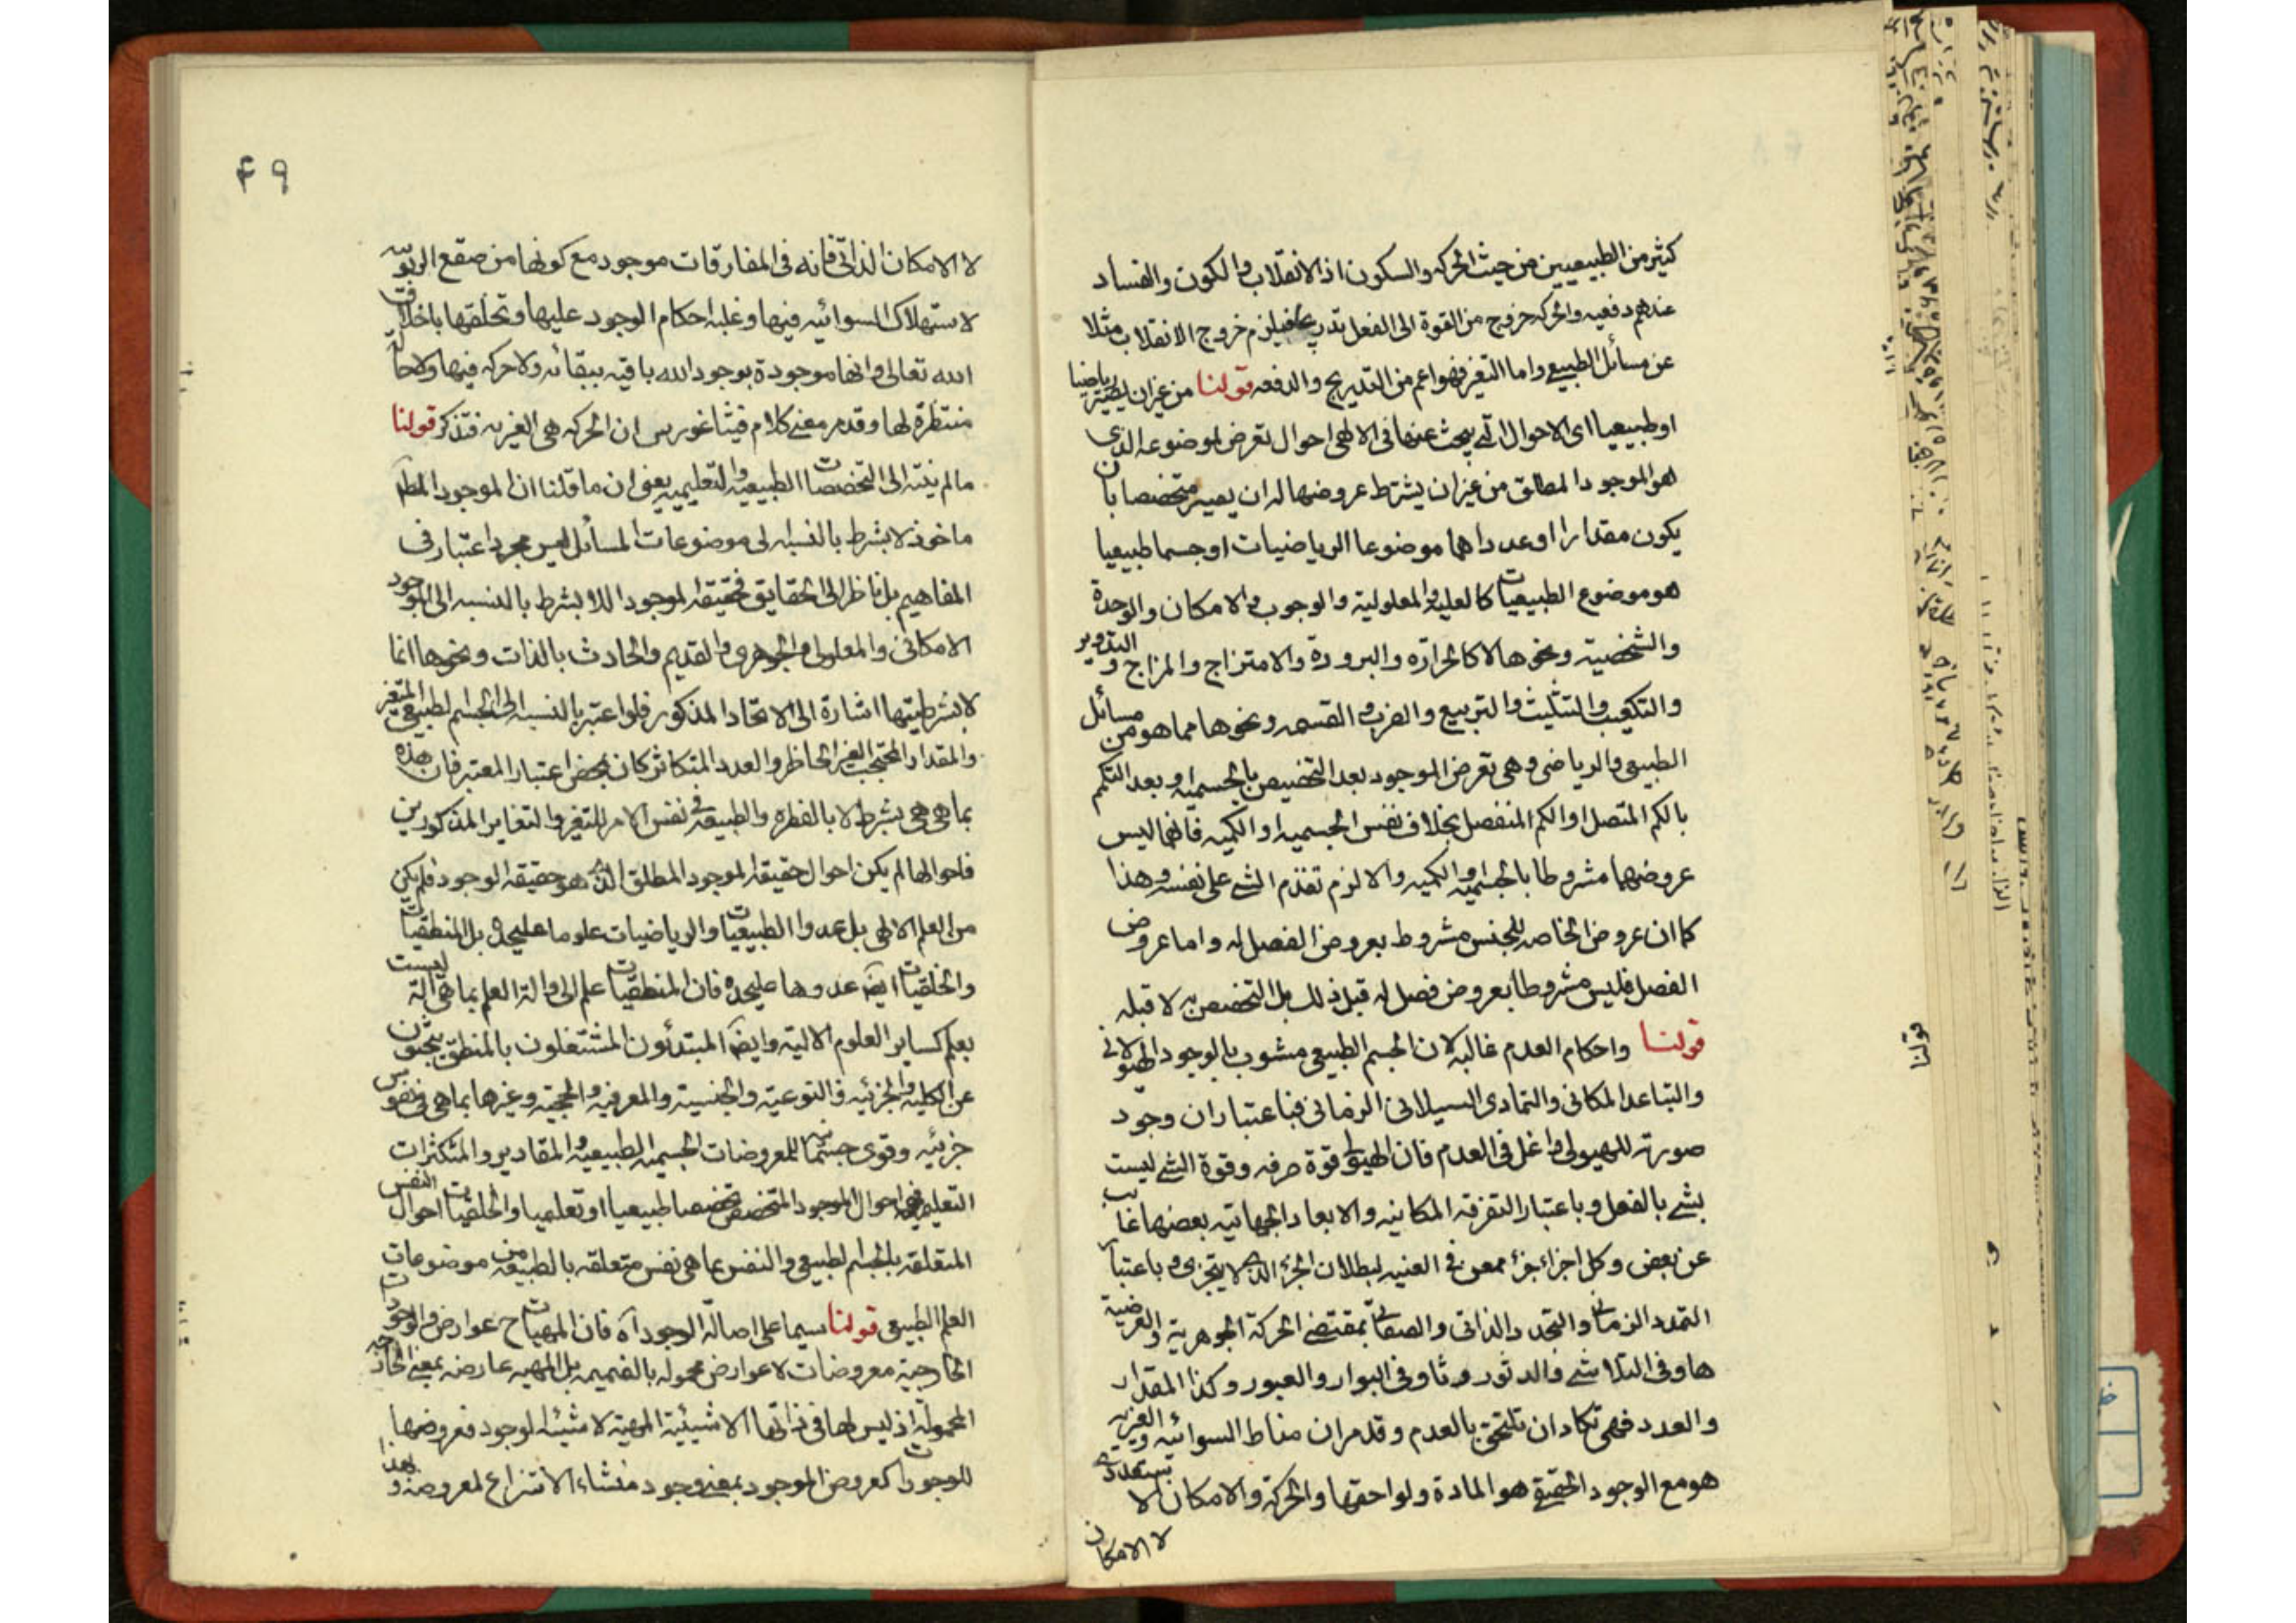 كثير من الطبيعيين من حيث الحركه والسكون اذ الانقلاب والكون والفساد
عندهم دفعيه والحركه خروج من القوة الى الفعل تدريجا فيلزم خروج الانقلاب مثلا
عن مسائل الطبيعى واما التغير فهو اعم من التدريج والدفعه قولنا من غير ان يصير رياضيا
او طبيعيا اى الاحوال التى يبحث عنها فى الالهى احوال تعرض لموضوعه الذى
هو الموجود المطلق من غير ان يشترط عروضها له ان يصير متخصصا بان
يكون مقدارا او عددا هما موضوعا الرياضيات او جسما طبيعيا
هو موضوع الطبيعيات كالعليه والمعلولية والوجوب والامكان والوحدة
والشخصية ونحوها لا كالحرارة والبرودة والامتزاج والمزاج والتدوير
والتكعيب والتثليث والتربيع والضرب والقسمه ونحوها مما هو من مسائل
الطبيعى والرياضى وهى تعرض الموجود بعد التخصيص بالجسميه او بعد التكمم
بالكم المتصل او الكم المنفصل بخلاف نفس الجسميه او الكميه فانها ليس
عروضهما مشروطا بالجسميه والكميه والا لزم تقدم الشئ على نفسه وهذا
كما ان عروض الخاصه للجنس مشروط بعروض الفصل له واما عروض
الفصل فليس مشروطا بعروض فصل له قبل ذلك بل التخصص به لا قبله
قولنا واحكام العدم غالبه لان الجسم الطبيعى مشوب بالوجود الهيولانى
والتباعد المكانى والتمادى السيلانى الزمانى فباعتبار ان وجود
صورته للهيولى واغل فى العدم فان الهيولى قوة صرفه وقوة الشئ ليست
بشئ بالفعل وباعتبار التفرقه المكانيه والابعاد الجهاتيه بعضها غايب
عن بعض وكل اجزاء جزء ممعن فى الغيبه لبطلان الجزء الذى لا يتجزى وباعتبار
التمدد الزمانى والتجدد الذاتى والصفاتى بمقتضى الحركة الجوهرية والعرضية
هاو فى التلاشى والدثور وثاو فى البوار والعبور وكذا المقدار
والعدد فهى تكاد ان تلتحق بالعدم وقد مر ان مناط السوائيه والغيريه
هو مع الوجود الحقيقى هو المادة ولواحقها والحركة والامكان الاستعدادى
لا الامكان
قولنا
۴۹
لا الامكان الذاتى فانه فى المفارقات موجود مع كونها من صقع الربوبيه
لاستهلاك السوائيه فيها وغلبه احكام الوجود عليها وتخلقها باخلاق
الله تعالى وانها موجودة بوجود الله باقيه ببقائه ولا حركه فيها ولا حالة
منتظرة لها وقد مر معنى كلام فيثاغورس ان الحركه هى الغيريه فتذكر قولنا
ما لم ينته الى التخصصات الطبيعيه والتعليميه يعنى ان ما قلنا ان الموجود المطلق
ماخوذ لا بشرط بالنسبه الى موضوعات المسائل ليس مجرد اعتبار فى
المفاهيم بل ناظر الى الحقايق فحقيقه الموجود اللابشرط بالنسبه الى الموجود
الامكانى والمعلولى والجوهرى والقديم والحادث بالذات ونحوها انما
لا بشرطيتها اشارة الى الاتحاد المذكور فلو اعتبر بالنسبه الى الجسم الطبيعى المتغير
والمقدار المحتجب الغير الحاظر والعدد المتكاثر كان بمحض اعتبار المعتبر فان هذه
بما هى هى بشرط لا بالفطره والطبيعه فى نفس الامر للتغير والتغاير المذكورين
فاحوالها لم يكن احوال حقيقه الموجود المطلق الذى هو حقيقه الوجود فلم يكن
من العلم الالهى بل عدوا الطبيعيات والرياضيات علوما عليحدة بل المنطقيات
والخلقيات ايضا عدوها عليحده فان المنطقيات علم الى والة العلم بما هى الة ليست
بعلم كساير العلوم الالية وايضا المبتدئون المشتغلون بالمنطق يبحثون
عن الكليه والجزئيه والنوعية والجنسية والمعرفيه والحجيه وغيرها بما هى فى نفوس
جزئيه وقوى جسمانيه للمعروضات الجسميه الطبيعيه والمقادير والمتكثرات
التعليميه فهى احوال الموجود المتخصص تخصصا طبيعيا او تعليميا والخلقيات احوال النفس
المتعلقه بالجسم الطبيعى والنفس بما هى نفس متعلقه بالطبيعه من موضوعات
العلم الطبيعى قولنا سيما على اصالة الوجود آه فان المهيات ح عوارض والوجودات
الخارجية معروضات لا عوارض محموله بالضميمه بل المهيه عارضه بمعنى الخارجيه
المحمولة اذ ليس لها فى ذاتها الا شيئية المهية لا شيئية الوجود فعروضها
للوجودات كعروض الموجود بمعنى وجود منشاء الانتزاع لمعروضه وبهذا